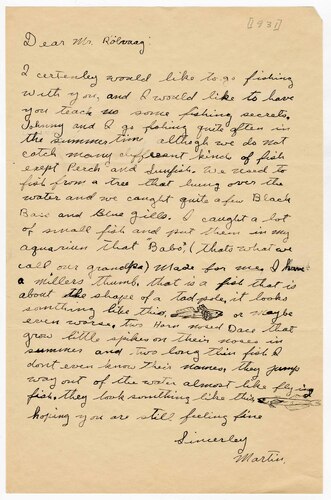 [1931]
Dear Mr. Rölvaag:
I certenley would like to go fishing
with you, and I would like to have
you teach us some fishing secrets,
Johnny and I go fishing quite often in
the summer time althogh we do not
catch many different kind of fish
exept Perch and Sunfish. We used to
fish from a tree that hung over the
water and we caught quite a few Black
Bass and blue gills. I caught a lot
of small fish and put them in my
aquarium that Babo, (thats what we
call our grandpa) made for me, I have
a millers thumb, that is a fish that is
about the shape of a tad pole, it looks
somthing like this, or maybe
even worse, two Horn nosed Dace that
grow little spikes on their noses in
summer and two long thin fish I
dont even know their names, they jump
way out of the water almost like flying
fish, they look somthing like this
hoping you are still feeling fine
Sincerley
Martin.